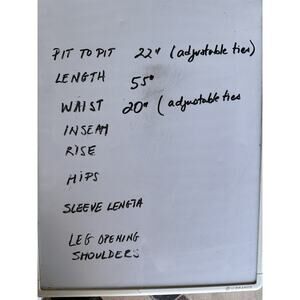 PIT TO PIT 22" (adjustable ties)
LENGTH 55"
WAIST 20" (adjustable ties
INSEAM
RISE
HIPS
SLEEVE LENGTH
LEG OPENING
SHOULDERS